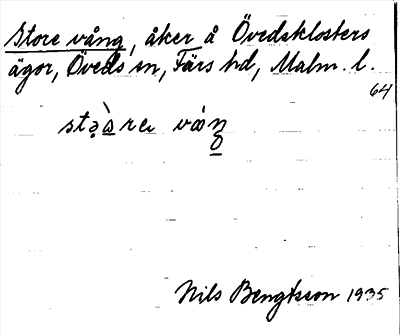 Store vång, åker å Övedsklosters
ägor, Öveds sn, Färs hd, Malm. l.
64
Nils Bengtsson 1935